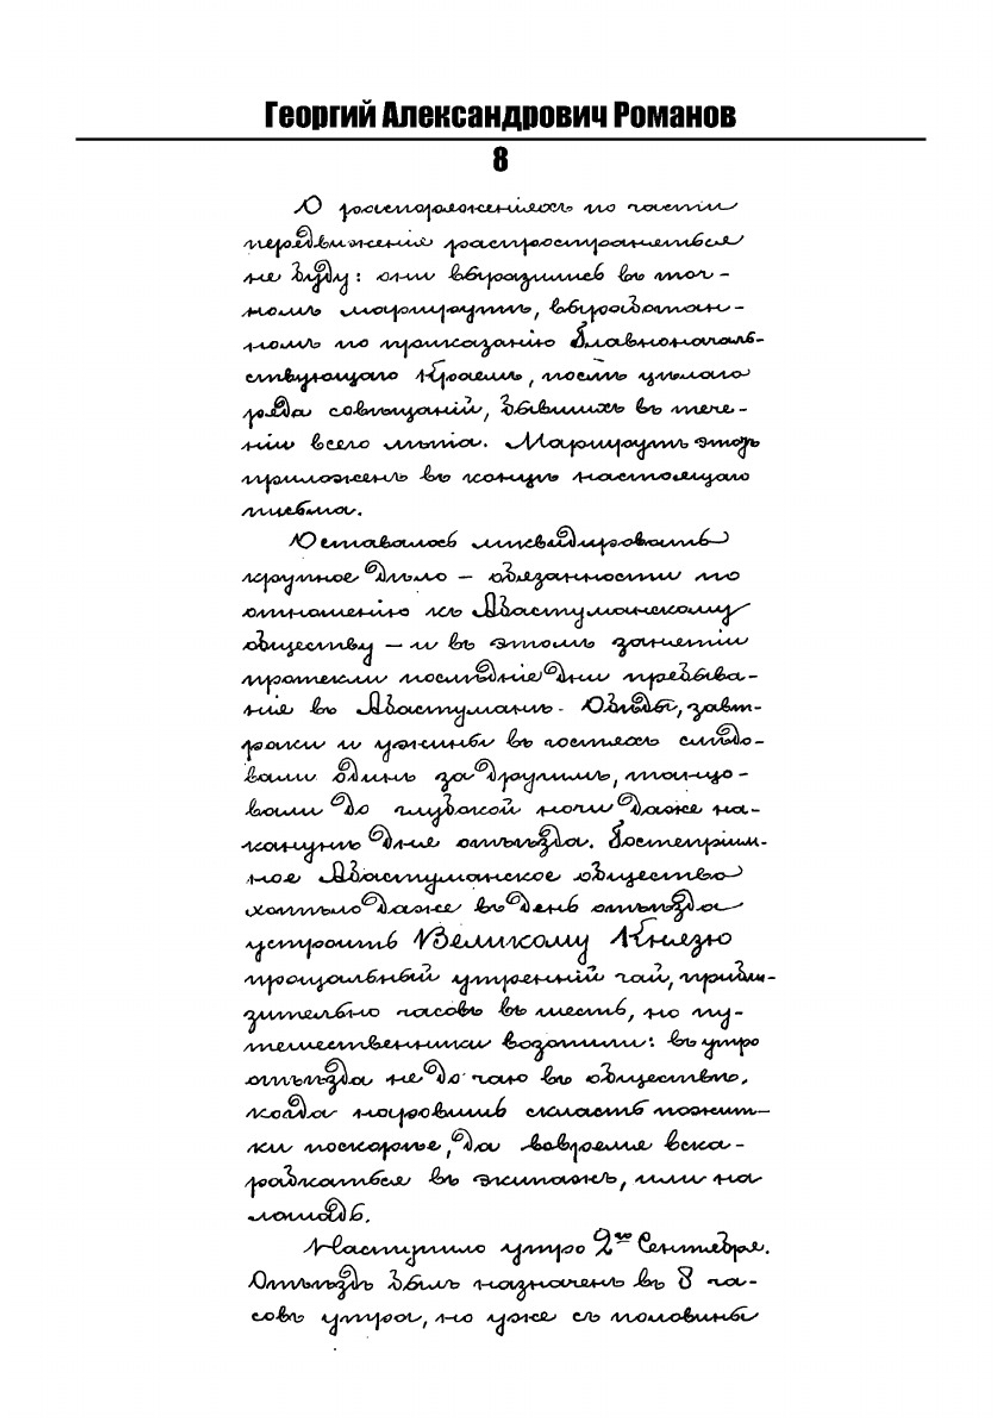 Георгий Александрович Романов
8
О распоряженіяхъ по части
передвиженія распространяться
не буду: они выразились въ точ-
номъ маршрутѣ, выработан-
номъ по приказанію Главноначаль-
ствующаго Краемъ, послѣ цѣлаго
ряда совѣщаній, бывшихъ въ тече-
ніи всего лѣта. Маршрутъ этотъ
приложенъ въ концѣ настоящаго
письма.
Оставалось ликвидировать
крупное дѣло – обязанности по
отношенію къ Абастуманскому
обществу – и въ этомъ занятіи
протекли послѣдніе дни пребыва-
нія въ Абастуманѣ. Обѣды, завт-
раки и ужины въ гостяхъ слѣдо-
вали одинъ за другимъ, танцо-
вали до глубокой ночи даже на-
канунѣ дня отъѣзда. Гостепріим-
ное Абастуманское общество
хотѣло даже въ день отъѣзда
устроить Великому Князю
прощальный утренній чай, прибли-
зительно часовъ въ шесть, но пу-
тешественники возопили: въ утро
отъѣзда не до чаю въ обществѣ,
когда норовишь скласть пожит-
ки поскорѣе, да вовремя вска-
рабкаться въ экипажъ, или на
лошадь.
Наступило утро 2го Сентября.
Отъѣздъ былъ назначенъ въ 8 ча-
совъ утра, но уже съ половины